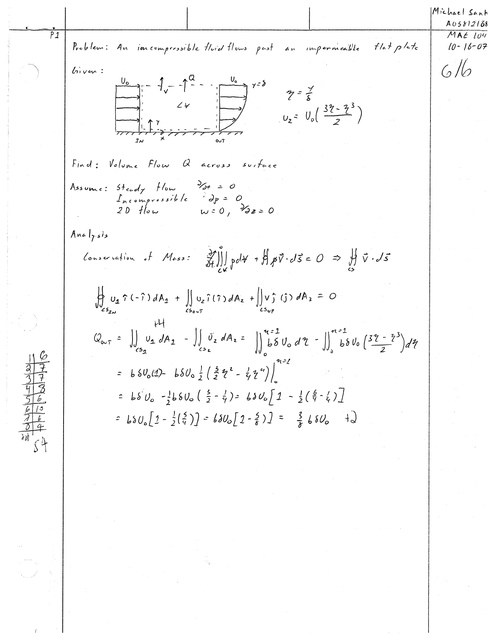 Michael Sant
A05812168
MAE 104
10-16-07
6/6
P1
Problem: An incompressible fluid flows past an impermeable flat plate
Given:
U₀ Q U₀ y=δ
V
η = y/δ
u₂ = U₀((3η - η³)/2)
Y
X
IN OUT
Find: Volume Flow Q across surface
Assume: Steady flow ∂/∂t = 0
Incompressible ∂ρ = 0
2D flow w=0, ∂/∂z = 0
Analysis
Conservation of Mass: ∂/∂t ∭ ρdV + ∯ ρv̄·ds̄ = 0 ⇒ ∯ v̄·ds̄
∬ u₁ î(-î)dA₁ + ∬ u₂ î(î)dA₂ + ∬ vĵ(ĵ)dA₃ = 0
+4
Q_OUT = ∬ u₁ dA₁ - ∬ u₂ dA₂ = ∫₀^η=1 bδU₀ dη - ∫₀^η=1 bδU₀((3η - η³)/2)dη
= bδU₀(1) - bδU₀ ½(3/2 η² - ¼η⁴)|₀^η=1
= bδU₀ - ½bδU₀(3/2 - ¼) = bδU₀[1 - ½(6/4 - ¼)]
= bδU₀[1 - ½(5/4)] = bδU₀[1 - 5/8] = 3/8 bδU₀ +2
1 6
2 7
3 7
4 8
5 6
6 10
54